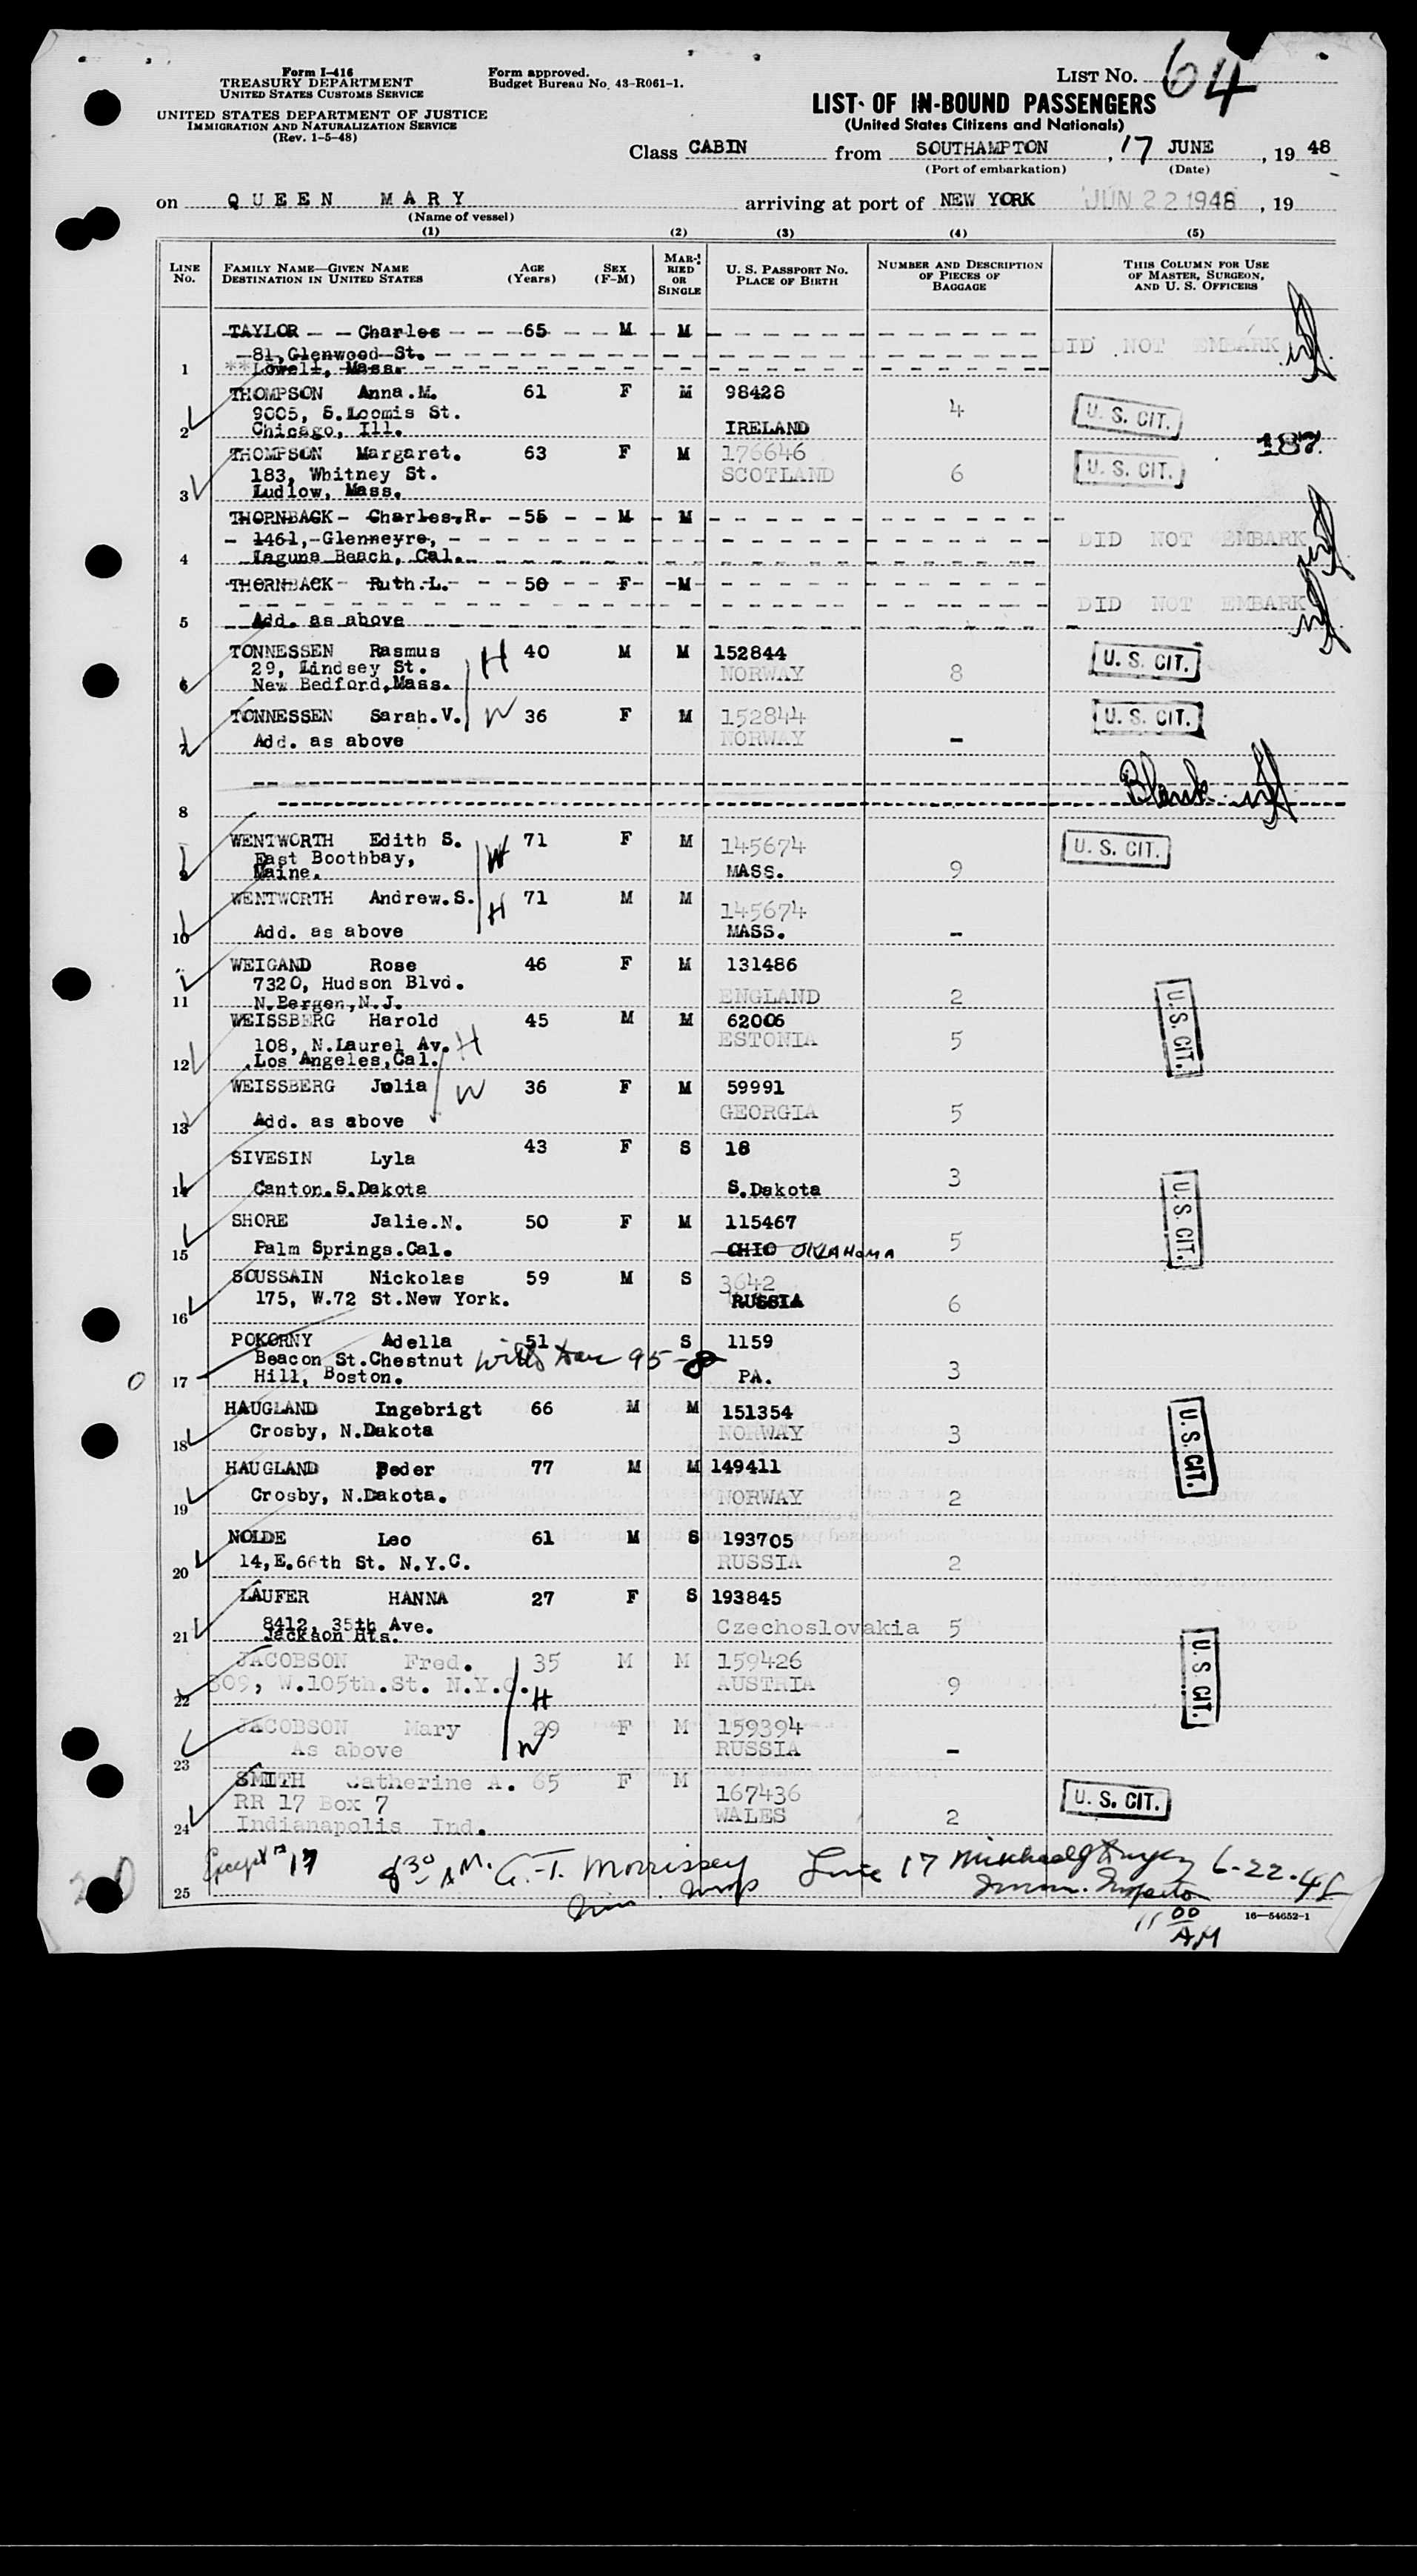 Form I-416
TREASURY DEPARTMENT
UNITED STATES CUSTOMS SERVICE
UNITED STATES DEPARTMENT OF JUSTICE
IMMIGRATION AND NATURALIZATION SERVICE
(Rev. 1-5-48)
Form approved.
Budget Bureau No. 43-R061-1.
LIST No. 64
LIST OF IN-BOUND PASSENGERS
(United States Citizens and Nationals)
Class CABIN from SOUTHAMPTON, 17 JUNE, 19 48
(Port of embarkation) (Date)
on QUEEN MARY arriving at port of NEW YORK JUN 22 1948, 19
(Name of vessel)
(1) (2) (3) (4) (5)
LINE No. FAMILY NAME—GIVEN NAME DESTINATION IN UNITED STATES AGE (Years) SEX (F-M) MARRIED OR SINGLE U. S. PASSPORT No. PLACE OF BIRTH NUMBER AND DESCRIPTION OF PIECES OF BAGGAGE THIS COLUMN FOR USE OF MASTER, SURGEON, AND U. S. OFFICERS
TAYLOR - - Charles - - - 65 - - M - M
81, Glenwood St. DID NOT EMBARK
1 **Lowell, Mass.
THOMPSON Anna.M. 61 F M 98428
9005, S.Loomis St. 4 U. S. CIT.
2 Chicago, Ill. IRELAND
187.
THOMPSON Margaret. 63 F M 176646
183, Whitney St. SCOTLAND 6 U. S. CIT.
3 Ludlow, Mass.
THORNBACK - Charles.R. - 55 - - M - M
1461, Glenneyre, DID NOT EMBARK
4 Laguna Beach, Cal.
THORNBACK - Ruth.L. - - - 50 - - F - M
DID NOT EMBARK
5 Add. as above
TONNESSEN Rasmus H 40 M M 152844 U. S. CIT.
29, Lindsey St. NORWAY 8
6 New Bedford, Mass.
TONNESSEN Sarah.V. W 36 F M 152844 U. S. CIT.
7 Add. as above NORWAY -
8 Blank
WENTWORTH Edith S. W 71 F M 145674 U. S. CIT.
East Boothbay,
9 Maine. MASS. 9
WENTWORTH Andrew.S. H 71 M M 145674
10 Add. as above MASS. -
WEIGAND Rose 46 F M 131486
7320, Hudson Blvd.
11 N.Bergen, N.J. ENGLAND 2
WEISSBERG Harold 45 M M 62006
108, N.Laurel Av. H ESTONIA 5 U. S. CIT.
12 Los Angeles, Cal.
WEISSBERG Julia W 36 F M 59991
13 Add. as above GEORGIA 5
SIVESIN Lyla 43 F S 18
14 Canton.S.Dakota S.Dakota 3
SHORE Jalie.N. 50 F M 115467 U. S. CIT.
15 Palm Springs.Cal. OHIO OKLAHOMA 5
SOUSSAIN Nickolas 59 M S 3642
16 175, W.72 St.New York. RUSSIA 6
POKORNY Adella 51 S 1159
Beacon St.Chestnut 95-8
17 Hill, Boston. PA. 3
HAUGLAND Ingebrigt 66 M M 151354
18 Crosby, N.Dakota NORWAY 3 U. S. CIT.
HAUGLAND Peder 77 M M 149411
19 Crosby, N.Dakota. NORWAY 2
NOLDE Leo 61 M S 193705
20 14, E.66th St. N.Y.C. RUSSIA 2
LAUFER HANNA 27 F S 193845
8412, 35th Ave. Czechoslovakia 5
21 Jackson Hts.
JACOBSON Fred. 35 M M 159426
22 309, W.105th.St. N.Y.C. H AUSTRIA 9 U. S. CIT.
JACOBSON Mary 29 F M 159394
23 As above W RUSSIA -
SMITH Catherine A. 65 F M 167436
RR 17 Box 7 U. S. CIT.
24 Indianapolis Ind. WALES 2
Except 17 8 30 A.M. G. T. Morrissey Line 17 6-22-48
25 Imm. Insp Immi. Inspector
11 00 AM
16—54652-1